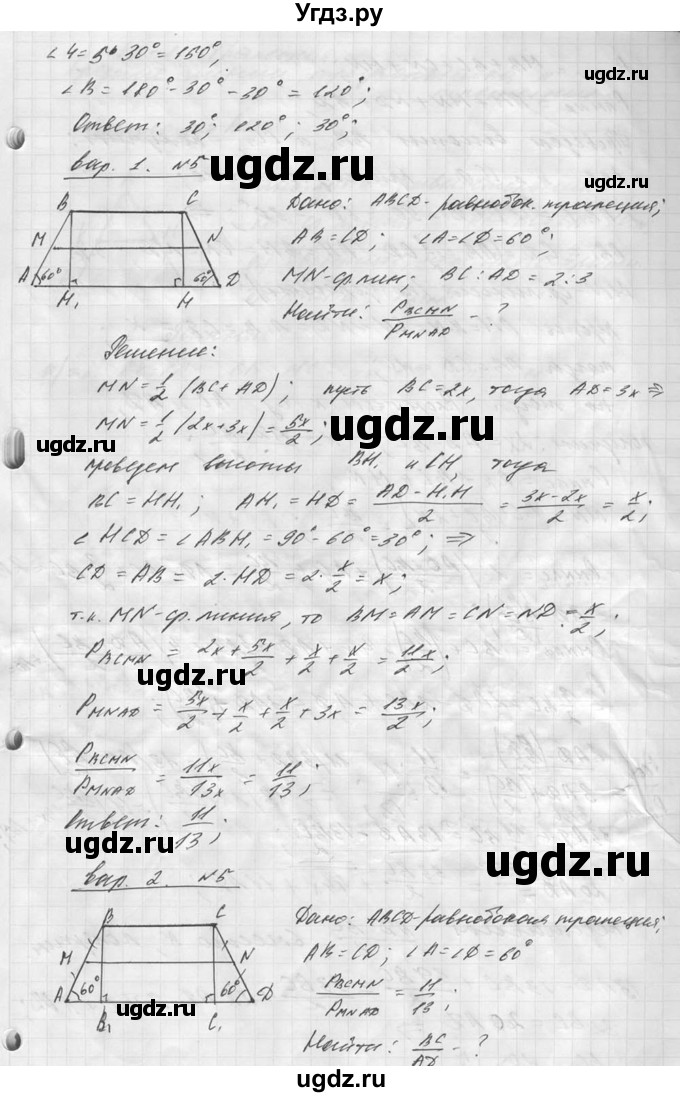 Угдз.ру
∠4 = 5·30° = 150°;
∠B = 180° - 30° - 30° = 120°;
Ответ: 30°; 120°; 30°;
ugdz.ru
ugdz.ru
вар. 1. №5
ugdz.ru
B C
M N
A 60° 60° D
H₁ H
Дано: ABCD - равнобок. трапеция;
AB = CD; ∠A = ∠D = 60°;
MN - ср. лин; BC : AD = 2 : 3
Найти: P BCMN / P MNAD - ?
Решение:
MN = 1/2 (BC + AD); пусть BC = 2x, тогда AD = 3x ⇒
MN = 1/2 (2x + 3x) = 5x/2;
ugdz.ru
ugdz.ru
проведем высоты BH₁ и CH, тогда
BC = HH₁; AH₁ = HD = (AD - H₁H)/2 = (3x - 2x)/2 = x/2;
∠HCD = ∠ABH₁ = 90° - 60° = 30°; ⇒
CD = AB = 2·HD = 2·x/2 = x;
ugdz.ru
т.к. MN - ср. линия, то BM = AM = CN = ND = x/2;
P BCMN = 2x + 5x/2 + x/2 + x/2 = 11x/2;
ugdz.ru
P MNAD = 5x/2 + x/2 + x/2 + 3x = 13x/2;
ugdz.ru
P BCMN / P MNAD = 11x/13x = 11/13;
Ответ: 11/13;
ugdz.ru
ugdz.ru
вар. 2. №5
B C
M N
A 60° 60° D
B₁ C₁
Дано: ABCD - равнобокая трапеция;
AB = CD; ∠A = ∠D = 60°
P BCMN / P MNAD = 11/13;
Найти: BC/AD - ?
ugdz.ru
ugdz.ru
ugdz.ru